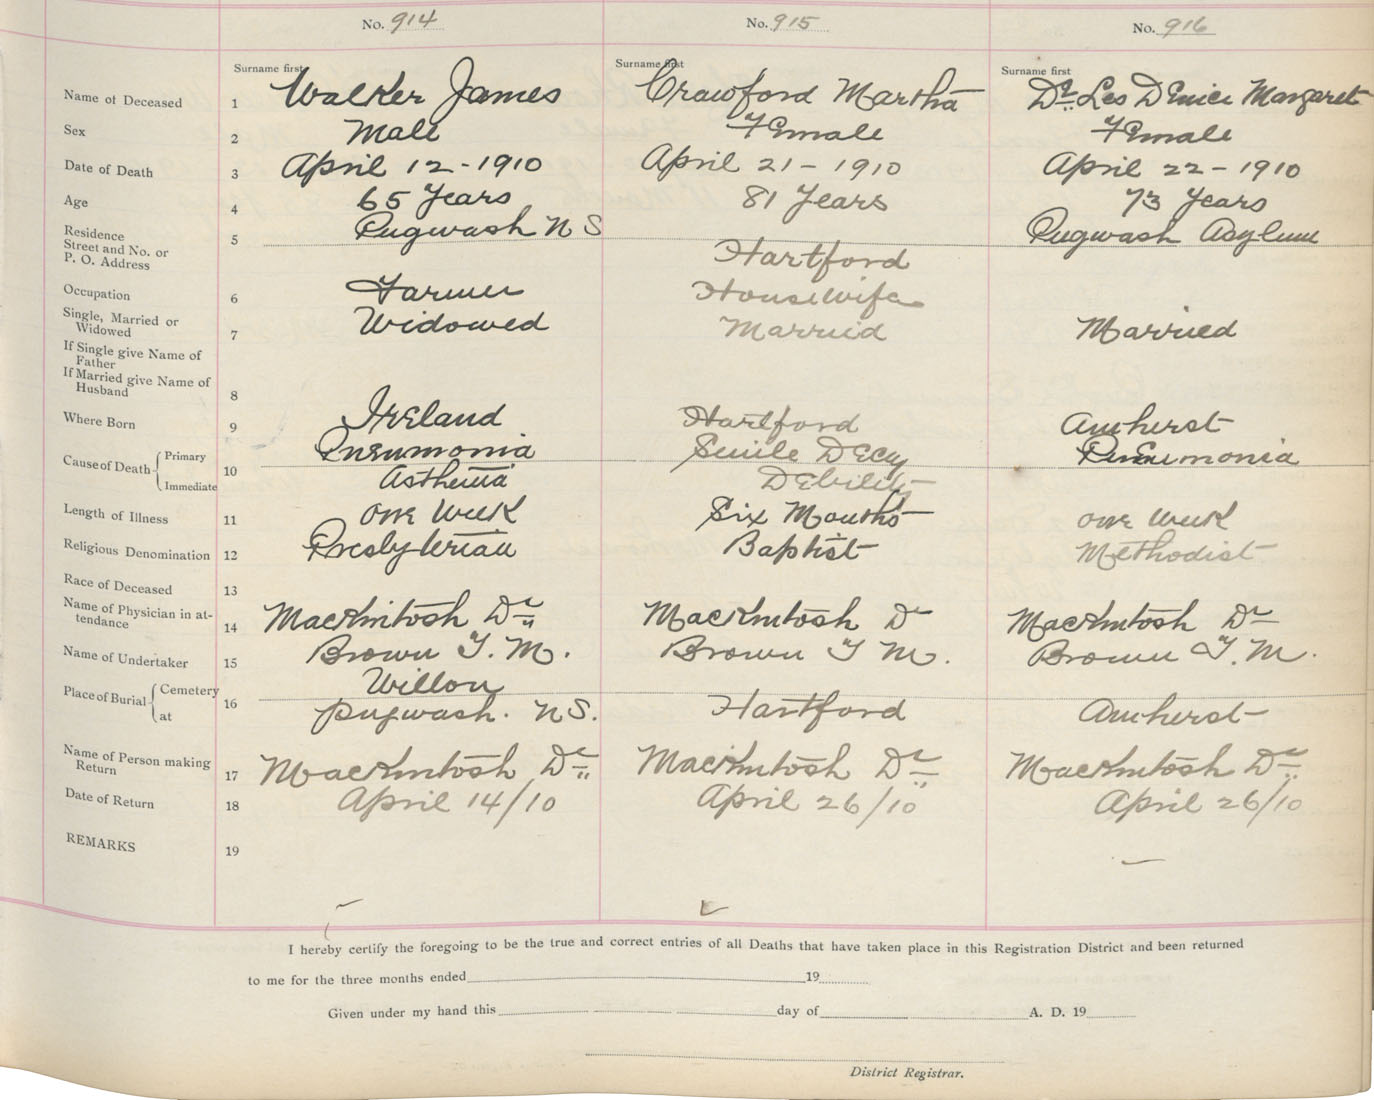 No. 914 No. 915 No. 916
Surname first Surname first Surname first
Name of Deceased 1 Walker James Crawford Martha Margaret
Sex 2 Male Female Female
Date of Death 3 April 12 - 1910 April 21 - 1910 April 22 - 1910
Age 4 65 Years 81 Years 73 Years
Residence
Street and No. or
P. O. Address 5 Pugwash N S Hartford Pugwash Asylum
Occupation 6 Farmer Housewife
Single, Married or
Widowed 7 Widowed Married Married
If Single give Name of
Father
If Married give Name of
Husband 8
Where Born 9 Ireland Hartford Amherst
Cause of Death Primary Pneumonia Senile Decy Pneumonia
10
Immediate Asthema Debility
Length of Illness 11 one Week Six Months one Week
Religious Denomination 12 Presbyterian Baptist Methodist
Race of Deceased 13
Name of Physician in at-
tendance 14 MacKintosh Dr MacKintosh Dr MacKintosh Dr
Name of Undertaker 15 Brown F. M. Brown F M. Brown F. M.
Place of Burial Cemetery Willon
16
at Pugwash. N S. Hartford Amherst
Name of Person making
Return 17 MacKintosh Dr MacKintosh Dr MacKintosh Dr
Date of Return 18 April 14/10 April 26/10 April 26/10
REMARKS 19
I hereby certify the foregoing to be the true and correct entries of all Deaths that have taken place in this Registration District and been returned
to me for the three months ended 19
Given under my hand this day of A. D. 19
District Registrar.